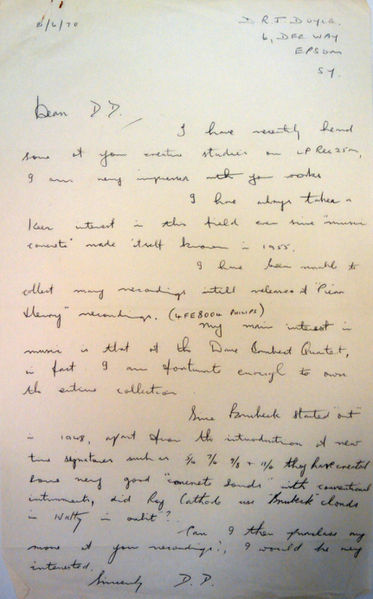 8/6/70
D R.J DOYLE.
6, DEE WAY
EPSOM
SY.
Dear D.D.,
I have recently heard
some of your creative studies on LP Rec 25m,
I am very impressed with your works
I have always taken a
keen interest in this field ever since "music
concrete" made itself known in 1955.
I have been unable to
collect many recordings until release of "Pierre
Henry" recordings. (4FE8004 PHILIPS)
My main interest in
music is that of the Dave Brubeck Quartet,
in fact I am fortunate enough to own
the entire collection.
Since Brubeck started "out"
in 1948, apart from the introduction of new
time signatures such as 5/4 7/4 9/8 + 11/4 they have created
some very good "concrete sounds" with conventional
instruments, did Ray Cathode use "Brubeck" sounds
in Waltz in orbit?
Can I then purchase any
more of your recordings?, I would be very
interested.
Sincerely D.D.